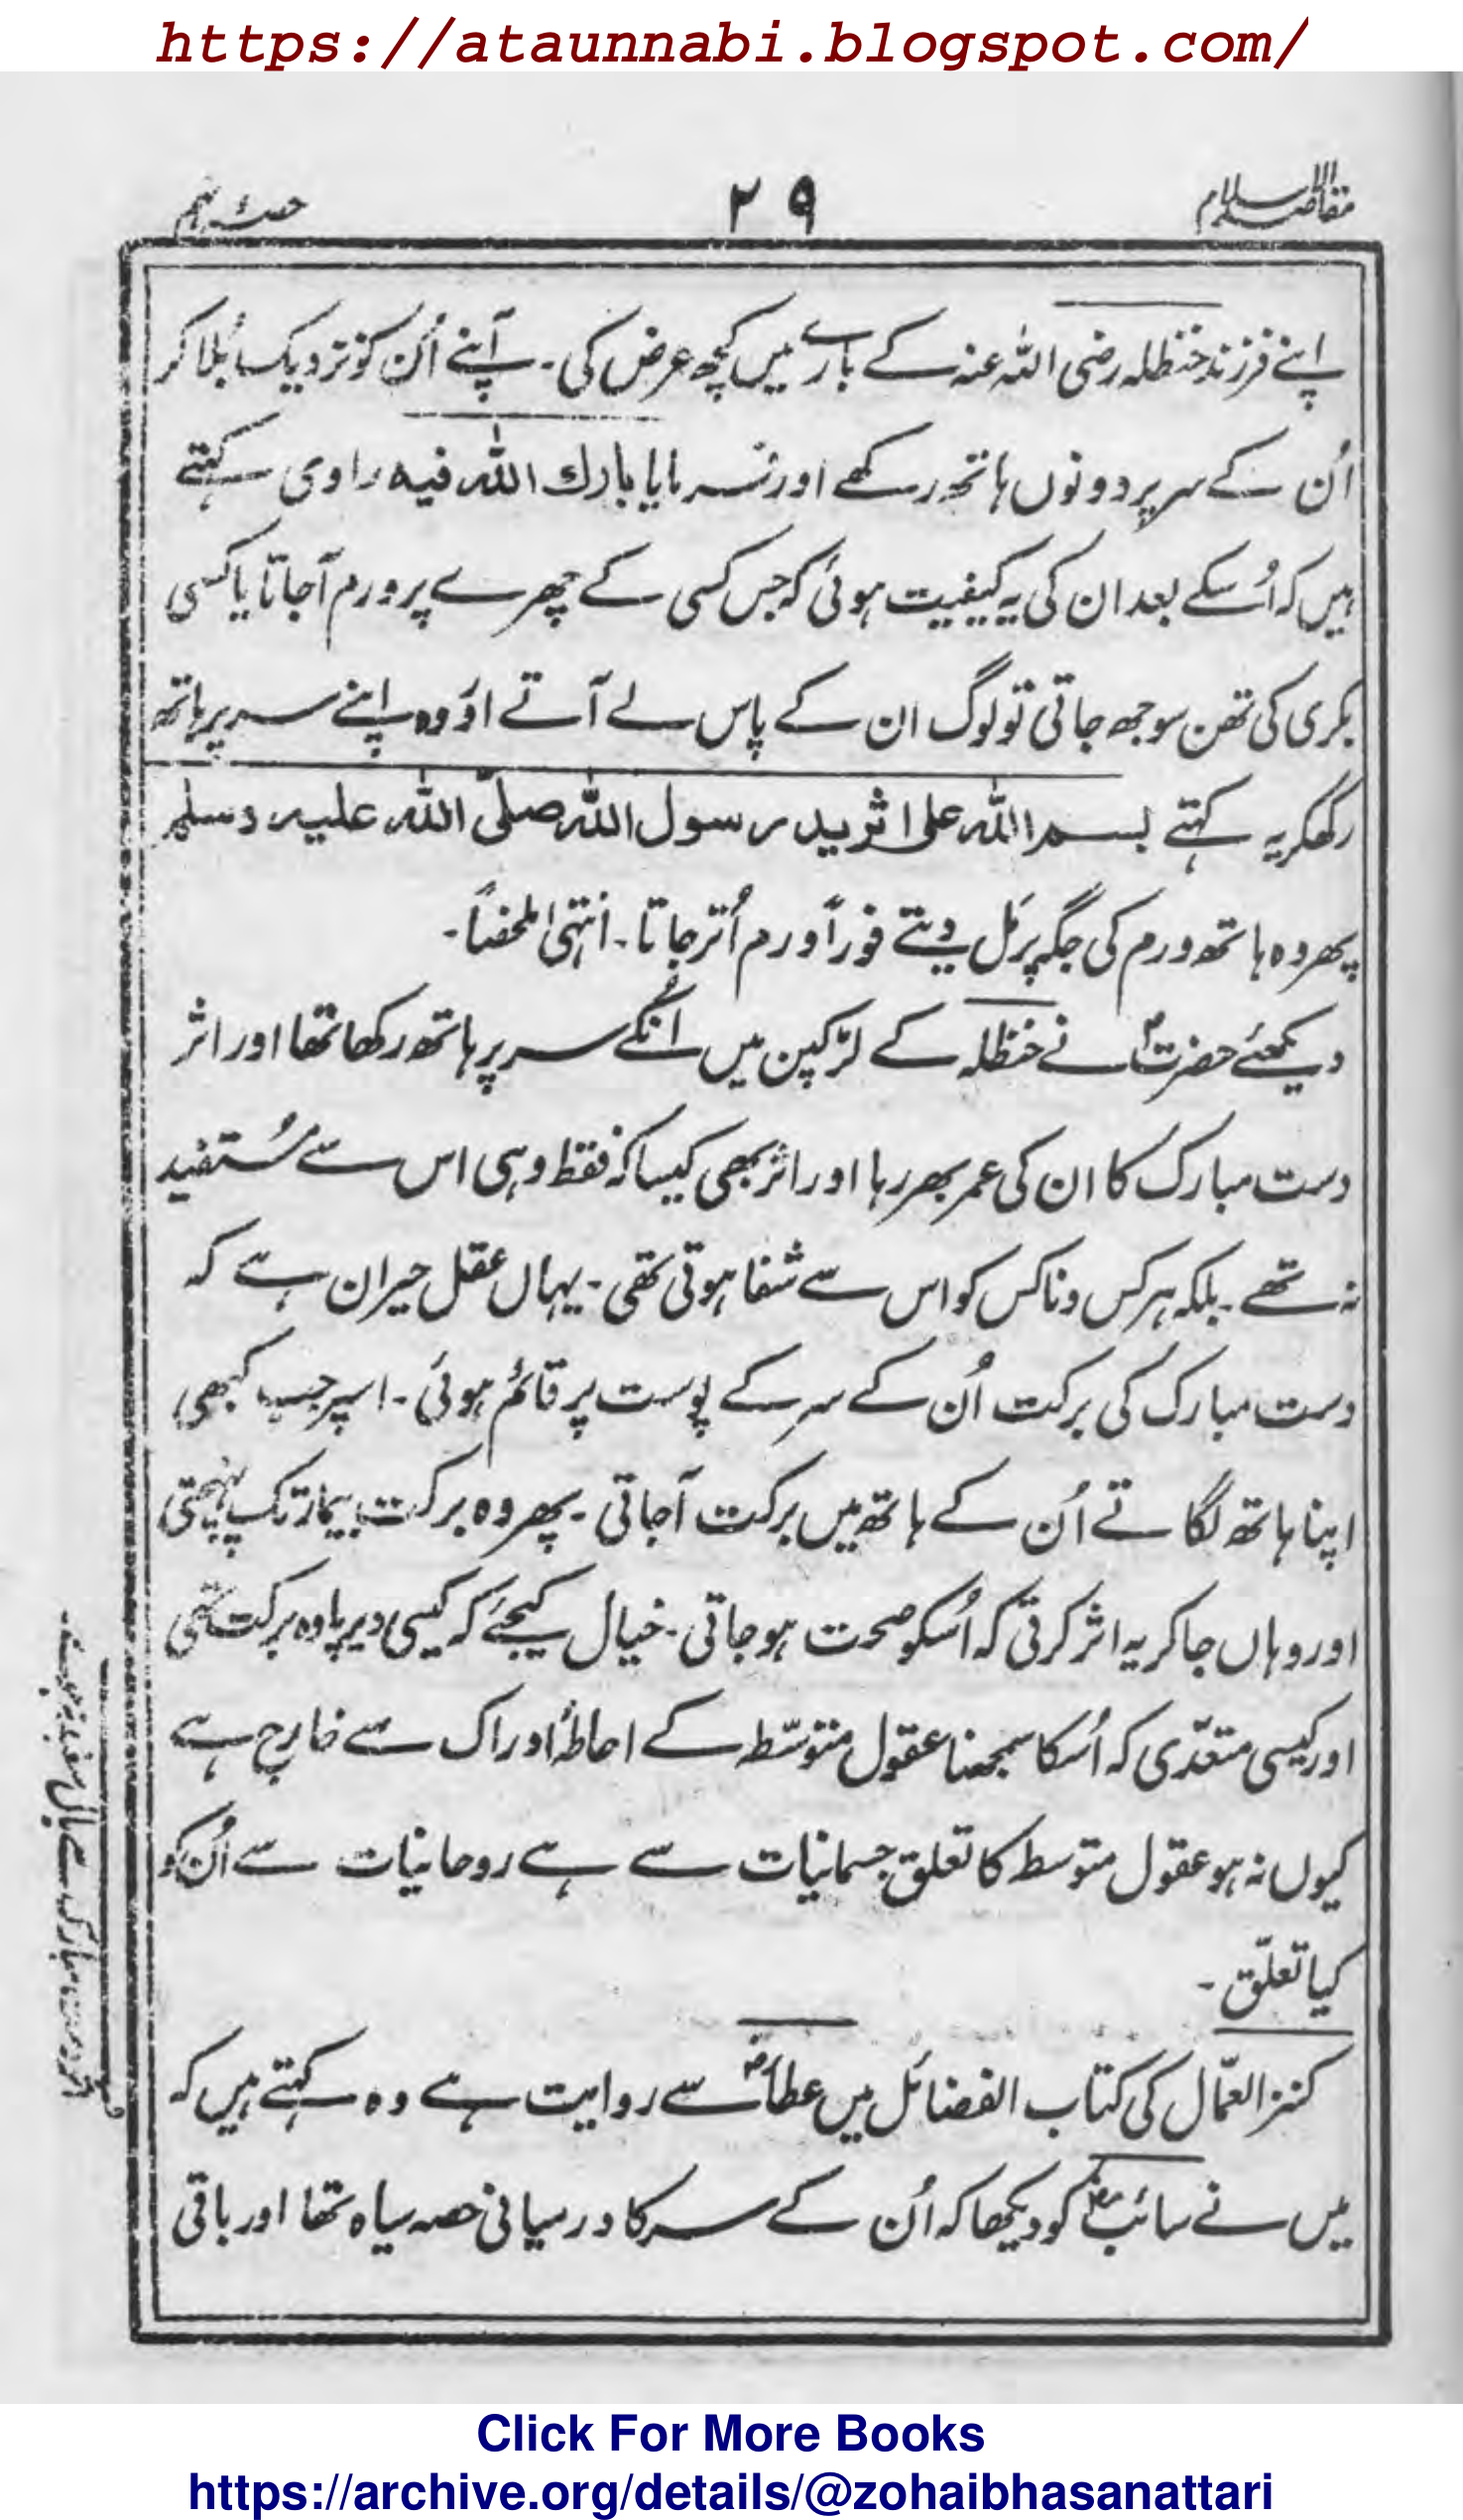 https://ataunnabi.blogspot.com/
مقاصد الاسلام
۲۹
حصہ نہم
اپنے فرزند حنظلہ رضی اللہ عنہ کے بارے میں کچھ عرض کی۔ آپنے اُن کو نزدیک بُلا کر
اُن کے سر پر دونوں ہاتھ رکھے اور فرمایا بارك اللہ فیہ راوی کہتے
ہیں کہ اُسکے بعد ان کی یہ کیفیت ہوئی کہ جس کسی کے چہرے پر ورم آجاتا یا کسی
بکری کی تھن سوجھ جاتی تو لوگ ان کے پاس لے آتے اوَر وہ اپنے سر پر ہاتھ
رکھکر یہ کہتے بسم اللہ علی اثر ید رسول اللہ صلّی اللہ علیہ وسلم
پھر وہ ہاتھ ورم کی جگہ پر مَل دیتے فوراً ورم اُتر جاتا۔ انتہیٰ ملخصاً۔
دیکھئے حضرتؐ نے حنظلہ کے لڑکپن میں انکے سر پر ہاتھ رکھا تھا اور اثر
دست مبارک کا ان کی عمر بھر رہا اور اثر بھی کیسا کہ فقط وہی اس سے مُستفید
نہ تھے۔ بلکہ ہر کس و ناکس کو اس سے شفا ہوتی تھی۔ یہاں عقل حیران ہے کہ
دست مبارک کی برکت اُن کے سر کے پوست پر قائم ہوئی۔ اسپر جب کبھی
اپنا ہاتھ لگاتے اُن کے ہاتھ میں برکت آجاتی۔ پھر وہ برکت بیمار تک پہنچتی
اور وہاں جاکر یہ اثر کرتی کہ اُسکو صحت ہوجاتی۔ خیال کیجئے کہ کیسی دیرپا وہ برکت تھی
اور کیسی متعدّی کہ اُسکا سمجھنا عقول متوسّطہ کے احاطۂ ادراک سے خارج ہے
کیوں نہ ہو عقول متوسط کا تعلق جسمانیات سے ہے روحانیات سے اُن کو
کیا تعلّق۔
کنز العمّال کی کتاب الفضائل میں عطاؒ سے روایت ہے وہ کہتے ہیں کہ
میں نے سائبؓ کو دیکھا کہ اُن کے سر کا درمیانی حصہ سیاہ تھا اور باقی
اثر دست مبارک سے بال سفید نہ ہونے
Click For More Books
https://archive.org/details/@zohaibhasanattari